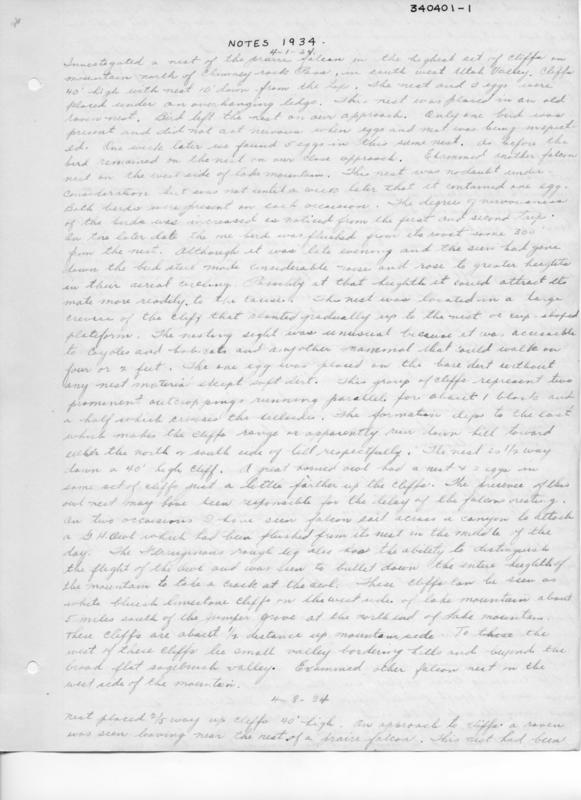 340401-1
NOTES 1934.
4-1-34.
Investigated a nest of the prairie falcon in the highest set of cliffs on
mountain north of Chimney rock Pass, in south west Utah Valley. Cliffs
40' high with nest 10' down from the top. The nest and 3 eggs were
placed under an overhanging ledge. This nest was placed in an old
raven nest. Bird left the nest on our approach. Only one bird was
present and did not act nervous when eggs and nest was being inspect-
ed. One week later we found 5 eggs in this same nest. As before the
bird remained on the nest on our close approach. Examined another falcon
nest on the west side of lake mountain. This nest was no doubt under
consideration but was not until a week later that it contained one egg.
Both birds were present on each occasion. The degree of nervousness
of the birds was increased as noticed from the first and second trip.
In the later date the one bird was flushed from its roost some 300'
from the nest. Although it was late evening and the sun had gone
down the bird still made considerable noise and rose to greater heights
in their aerial circling. Possibly at that height it could attract the
mate more readily to the cause. This nest was located in a large
crevice of the cliff that slanted gradually up to the nest or cup-shaped
platform. The nesting sight was unusual because it was accessible
to coyotes and bobcats and any other mammal that could walk on
four or 2 feet. The one egg was placed on the bare dirt without
any nest material except soft dirt. This group of cliffs represent two
prominent outcroppings running parallel for about 1 block and
a half which crosses the hillsides. The formation dips to the east
which makes the cliffs range or apparently run down hill toward
either the north or south side of hill respectfully. The nest is 1/2 way
down a 40' high cliff. A great horned owl had a nest & 2 eggs in
same set of cliffs just a little farther up the cliffs. The presence of this
owl nest may have been responsible for the delay of the falcon nesting.
On two occasions I have seen falcon sail across a canyon to attack
a G.H. Owl which had been flushed from its nest in the middle of the
day. The Ferruginous rough leg also has the ability to distinguish
the flight of the owl and was seen to bullet down the entire height of
the mountain to take a crack at the owl. These cliffs can be seen as
white bluish limestone cliffs on the west side of lake mountain about
5 miles south of the juniper grove at the north end of lake mountain.
These cliffs are about 1/2 distance up mountain side. To the
west of these cliffs lie small valley bordering hills and beyond the
broad flat sagebrush valley. Examined other falcon nest in the
west side of the mountain.
4-8-34
nest placed 2/3 way up cliffs 40' high. On approach to cliffs a raven
was seen leaving near the nest of a prairie falcon. This nest had been